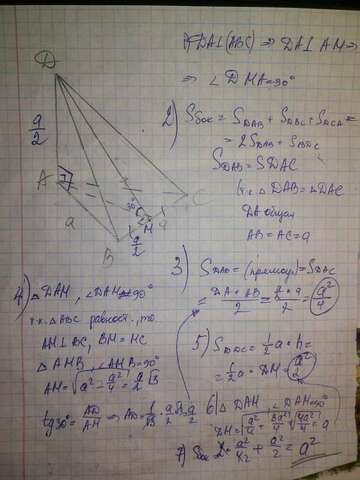 1) DA⊥(ABC) ⇒ DA⊥AM ⇒
⇒ ∠DMA=30°
2) Sбок = S_DAB + S_DBC + S_DCA =
= 2S_DAB + S_DBC
S_DAB = S_DAC
(т.к. △DAB = △DAC
DA общая
AB = AC = a
D
a/2
A
a
B
C
30°
M
a/2
3) S_DAB = (прямоуг) = S_DAC
= DA · AB / 2 = a/2 · a / 2 = a²/4
4) △DAM, ∠DAM=90°
т.к. △ABC равност., то
AM⊥BC, BM = MC
△AMB, ∠AMB=90°
AM = √(a² − a²/4) = a/2 √3
tg30° = AD/AM ⇒ AD = 1/√3 · a√3/2 = a/2
5) S_DBC = 1/2 a · h =
= 1/2 a · DM = a²/2
6) △DAM, ∠DAM=90°
DM = √(a²/4 + 3a²/4) = √(4a²/4) = a
7) Sбок = 2 · a²/4 + a²/2 = a²